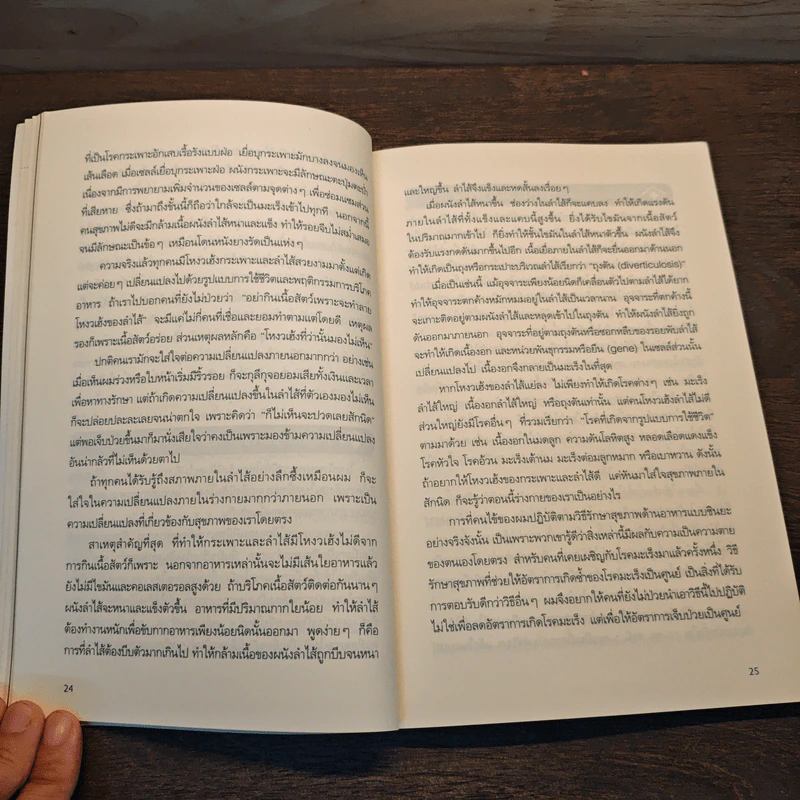 ที่เป็นโรคกระเพาะอักเสบเรื้อรังแบบฝ่อ เยื่อบุกระเพาะมักบางลงจนมองเห็น
เส้นเลือด เมื่อเซลล์เยื่อบุกระเพาะฝ่อ ผนังกระเพาะจะมีลักษณะตะปุ่มตะป่ำ
เนื่องจากมีการพยายามเพิ่มจำนวนของเซลล์ตามจุดต่างๆ เพื่อซ่อมแซมส่วน
ที่เสียหาย ซึ่งถ้ามาถึงขั้นนี้ก็ถือว่าใกล้จะเป็นมะเร็งเข้าไปทุกที นอกจากนี้
คนสุขภาพไม่ดีจะมีกล้ามเนื้อผนังลำไส้หนาและแข็ง ทำให้รอยจีบไม่สม่ำเสมอ
จนมีลักษณะเป็นข้อๆ เหมือนโดนหนังยางรัดเป็นแห่งๆ
ความจริงแล้วทุกคนมีโหงวเฮ้งกระเพาะและลำไส้สวยงามมาตั้งแต่เกิด
แต่จะค่อยๆ เปลี่ยนแปลงไปด้วยรูปแบบการใช้ชีวิตและพฤติกรรมการบริโภค
อาหาร ถ้าเราไปบอกคนที่ยังไม่ป่วยว่า "อย่ากินเนื้อสัตว์เพราะจะทำลาย
โหงวเฮ้งของลำไส้" จะมีแค่ไม่กี่คนที่เชื่อและยอมทำตามแต่โดยดี เหตุผล
รองก็เพราะเนื้อสัตว์อร่อย ส่วนเหตุผลหลักคือ "โหงวเฮ้งที่ว่านั้นมองไม่เห็น"
ปกติคนเรามักจะใส่ใจต่อความเปลี่ยนแปลงภายนอกมากกว่า อย่างเช่น
เมื่อเห็นผมร่วงหรือใบหน้าเริ่มมีริ้วรอย ก็จะกุลีกุจอยอมเสียทั้งเงินและเวลา
เพื่อหาทางรักษา แต่ถ้าเกิดความเปลี่ยนแปลงขึ้นในลำไส้ที่ตัวเองมองไม่เห็น
ก็จะปล่อยปละละเลยจนน่าตกใจ เพราะคิดว่า "ก็ไม่เห็นจะปวดเลยสักนิด"
แต่พอเจ็บป่วยขึ้นมาก็มานั่งเสียใจว่าคงเป็นเพราะมองข้ามความเปลี่ยนแปลง
อันน่ากลัวที่ไม่เห็นด้วยตาไป
ถ้าทุกคนได้รับรู้ถึงสภาพภายในลำไส้อย่างลึกซึ้งเหมือนผม ก็จะ
ใส่ใจในความเปลี่ยนแปลงภายในร่างกายมากกว่าภายนอก เพราะเป็น
ความเปลี่ยนแปลงที่เกี่ยวข้องกับสุขภาพของเราโดยตรง
สาเหตุสำคัญที่สุด ที่ทำให้กระเพาะและลำไส้มีโหงวเฮ้งไม่ดีจาก
การกินเนื้อสัตว์ก็เพราะ นอกจากอาหารเหล่านั้นจะไม่มีเส้นใยอาหารแล้ว
ยังไม่มีไขมันและคอเลสเตอรอลสูงด้วย ถ้าบริโภคเนื้อสัตว์ติดต่อกันนานๆ
ผนังลำไส้จะหนาและแข็งตัวขึ้น อาหารที่มีปริมาณกากใยน้อย ทำให้ลำไส้
ต้องทำงานหนักเพื่อขับกากอาหารเพียงน้อยนิดนั้นออกมา พูดง่ายๆ ก็คือ
การที่ลำไส้ต้องบีบตัวมากเกินไป ทำให้กล้ามเนื้อของผนังลำไส้ถูกบีบจนหนา
24
และใหญ่ขึ้น ลำไส้จึงแข็งและหดสั้นลงเรื่อยๆ
เมื่อผนังลำไส้หนาขึ้น ช่องว่างในลำไส้ก็จะแคบลง ทำให้เกิดแรงดัน
ภายในลำไส้ที่ทั้งแข็งและแคบนี้สูงขึ้น ยิ่งได้รับไขมันจากเนื้อสัตว์
ในปริมาณมากเข้าไป ก็ยิ่งทำให้ชั้นไขมันในลำไส้หนาตัวขึ้น ผนังลำไส้จึง
ต้องรับแรงกดดันมากขึ้นไปอีก เนื้อเยื่อภายในลำไส้ก็จะยื่นออกมาด้านนอก
ทำให้เกิดเป็นถุงหรือกระเปาะบริเวณลำไส้เรียกว่า "ถุงตัน (diverticulosis)"
เมื่อเป็นเช่นนี้ แม้อุจจาระเพียงน้อยนิดก็เคลื่อนตัวไปตามลำไส้ได้ยาก
ทำให้อุจจาระตกค้างหมักหมมอยู่ในลำไส้เป็นเวลานาน อุจจาระที่ตกค้างนี้
จะเกาะติดอยู่ตามผนังลำไส้และหลุดเข้าไปในถุงตัน ทำให้ผนังลำไส้ยิ่งถูก
ดันออกมาภายนอก อุจจาระที่อยู่ตามถุงตันหรือซอกหลืบของรอยพับลำไส้
จะทำให้เกิดเนื้องอก และหน่วยพันธุกรรมหรือยีน (gene) ในเซลล์ส่วนนั้น
เปลี่ยนแปลงไป เนื้องอกจึงกลายเป็นมะเร็งในที่สุด
หากโหงวเฮ้งของลำไส้แย่ลง ไม่เพียงทำให้เกิดโรคต่างๆ เช่น มะเร็ง
ลำไส้ใหญ่ เนื้องอกลำไส้ใหญ่ หรือถุงตันเท่านั้น แต่คนโหงวเฮ้งลำไส้ไม่ดี
ส่วนใหญ่ยังมีโรคอื่นๆ ที่รวมเรียกว่า "โรคที่เกิดจากรูปแบบการใช้ชีวิต"
ตามมาด้วย เช่น เนื้องอกในมดลูก ความดันโลหิตสูง หลอดเลือดแดงแข็ง
โรคหัวใจ โรคอ้วน มะเร็งเต้านม มะเร็งต่อมลูกหมาก หรือเบาหวาน ดังนั้น
ถ้าอยากให้โหงวเฮ้งของกระเพาะและลำไส้ดี แค่หันมาใส่ใจสุขภาพภายใน
สักนิด ก็จะรู้ว่าตอนนี้ร่างกายของเราเป็นอย่างไร
การที่คนไข้ของผมปฏิบัติตามวิธีรักษาสุขภาพด้านอาหารแบบชินยะ
อย่างจริงจังนั้น เป็นเพราะพวกเขารู้ดีว่าสิ่งเหล่านี้มีผลกับความเป็นความตาย
ของตนเองโดยตรง สำหรับคนที่เคยเผชิญกับโรคมะเร็งมาแล้วครั้งหนึ่ง วิธี
รักษาสุขภาพที่ช่วยให้อัตราการเกิดซ้ำของโรคมะเร็งเป็นศูนย์ เป็นสิ่งที่ได้รับ
การตอบรับดีกว่าวิธีอื่นๆ ผมจึงอยากให้คนที่ยังไม่ป่วยนำเอาวิธีนี้ไปปฏิบัติ
ไม่ใช่เพื่อลดอัตราการเกิดโรคมะเร็ง แต่เพื่อให้อัตราการเจ็บป่วยเป็นศูนย์
25